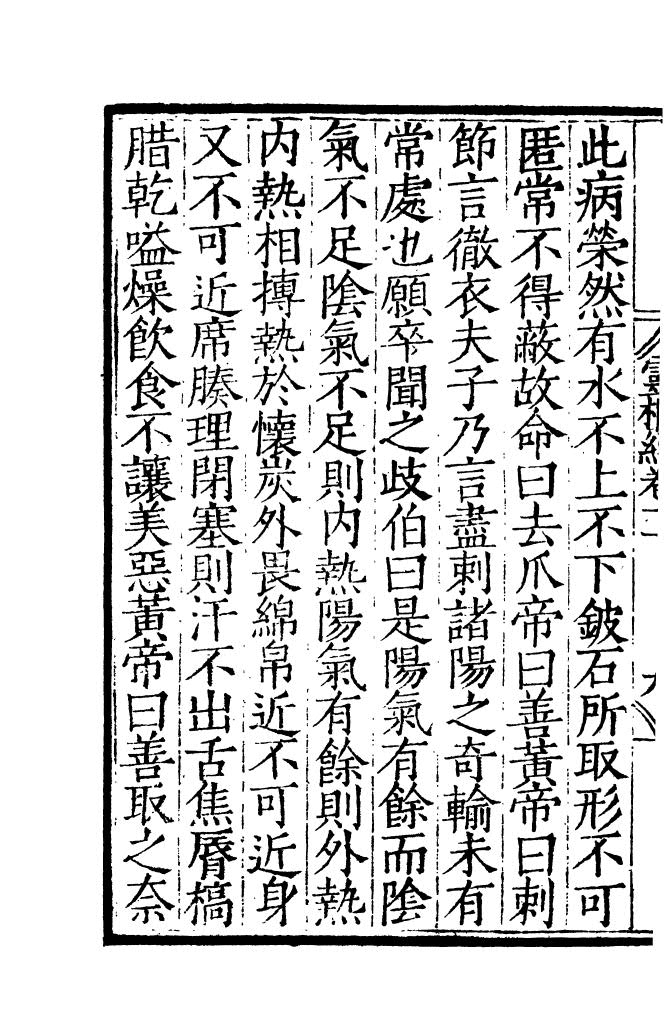 此病榮然有水不上不下鈹石所取形不可
匿常不得蔽故命曰去爪帝曰善黃帝曰刺
節言徹衣夫子乃言盡刺諸陽之奇輸未有
常處也願卒聞之歧伯曰是陽氣有餘而陰
氣不足陰氣不足則内熱陽氣有餘則外熱
内熱相搏熱於懷炭外畏綿帛近不可近身
又不可近席腠理閉塞則汗不出舌焦脣槁
腊乾嗌燥飲食不讓美惡黃帝曰善取之奈